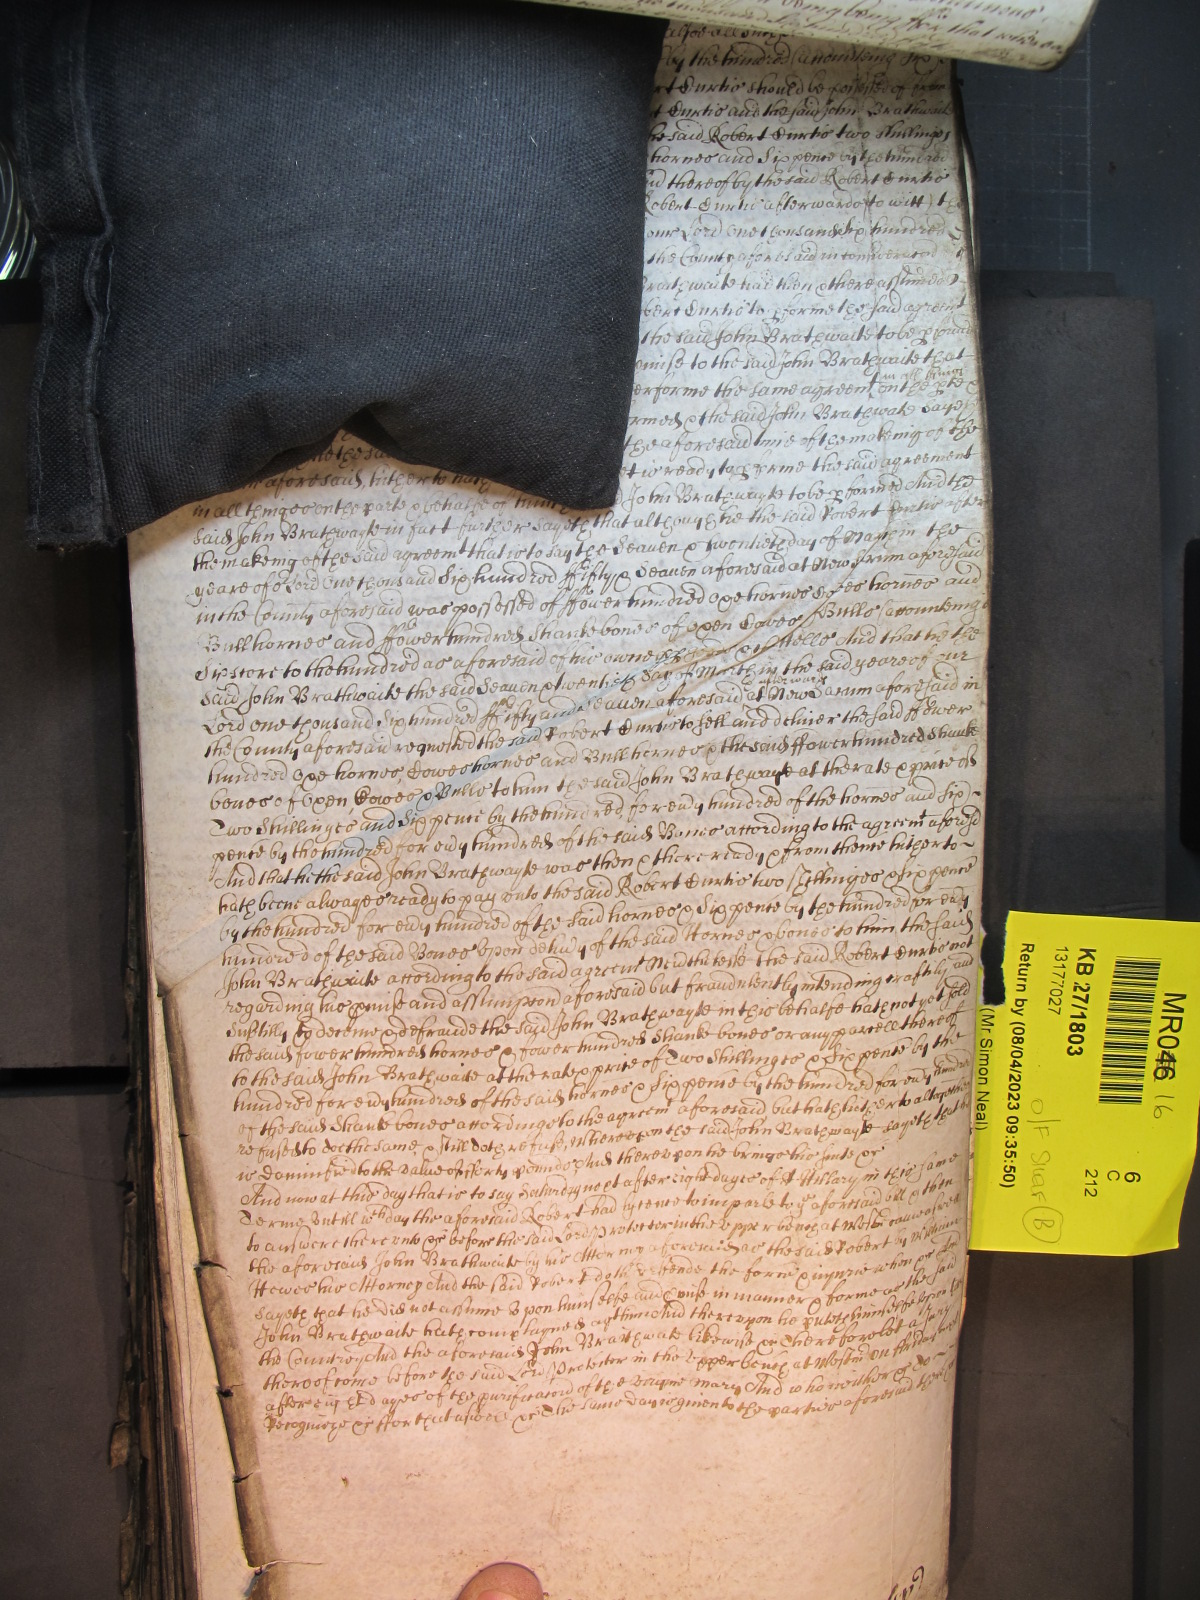 by the hundred accounting six
rt Curtis should be possessed of
t Curtis and the said John Brathwaite
he said Robert Curtis two shillinges
hornes and Sixpence by the hundred
nd thereof by the said Robert Curtis
Robert Curtis afterwards (to witt) the
our Lord One thousand Six hundred
the County aforesaid in consideracõn
Brathwaite had then & there assumed
bert Curtis to pforme the said agreemt
the said John Brathwaite to be pformed
omise to the said John Brathwaite that
erforme the same agreemt in all thinges on the pte
rmed & the said John Brathwaite sayeth
the aforesaid time of the making of the
et is ready to pforme the said agreement
aforesaid hitherto hath
in all thinges on the parte & behalfe of him John Brathwayte to be pformed And the
said John Brathwayte in fact further sayeth that although he the said Robert Curtis after
the makeing of the said agreement that is to say the Seauen & twentieth day of March in the
yeare of or Lord One thousand Six hundred ffifty & Seauen aforesaid at New Sarum aforesaid
in the County aforesaid was possessed of ffower hundred oxe hornes Cowes hornes and
Bull hornes and ffower hundred Shanke bones of oxen Cowes & Bulls (accounting
Six score to the hundred as aforesaid of his owne And that he the
said John Brathwaite the said Seauen & twentieth day of March in the said yeare of our
Lord one thousand Six hundred ffifty and Seauen aforesaid afterwards at New Sarum aforesaid in
the County aforesaid requested the said Robert Curtis to sell and deliver the said ffower
hundred oxe hornes, Cowes hornes and Bull hornes & the said ffower hundred Shanke
bones of Oxen, Cowes & Bulls to him the said John Brathwayte at the rate & price of
Two Shillinges and Sixpence by the hundred for eũy hundred of the hornes and Six
pence by the hundred for eũy hundred of the said Bones according to the agreemt aforesd
And that he the said John Brathwayte was then & there ready & from thence hitherto
hath beene alwayes ready to pay unto the said Robert Curtis two shillinges & sixpence
by the hundred for eũy hundred of the said hornes & Sixpence by the hundred for eũy
hundred of the said Bones upon delivy of the said Hornes & bones to him the said
John Brathwaite according to the said agreemt Neũthelesse the said Robert Curtis not
regarding his pmise and assumpcon aforesaid but fraudulently intending craftily and
Subtilly to deceive & defraude the said John Brathwayte in this behalfe hath not yet sold
the said fower hundred hornes & fower hundred Shanke bones or any parcell thereof
to the said John Brathwaite at the rate & price of Two Shillinges & Sixpence by the
hundred for eũy hundred of the said hornes & Sixpence by the hundred for eũy hundred
of the said Shanke bones according to the agreemt aforesaid but hath hitherto altogether
refused to doe the same & still doth refuse, Whereupon the said John Brathwayte sayeth that he
is damnified to the value of forty pounds & thereupon he brings his suite &c
And now at this day that is to say Saturday next after eight dayes of St Hillary in this same
Terme Untill wch day the aforesaid Robert had lycence to imparle to ye aforesaid bill & then
to answere there unto &c before the said Lord Protector in the Upper bench at Westmr came aswell
the aforesaid John Brathwaite by his Attorney aforesaid as the said Robert by William
Hewes his Attorney And the said Robert doth defende the force & iniurie when &c And
sayeth that he did not assume Upon himselfe and pmise in manner & forme as the said
John Brathwaite hath complayned agt him And thereupon he putteth himselfe upon
the Countrey And the aforesaid John Brathwaite likewise &c Therefore let a Jury
thereof come before the said Lord Protector in the Upper bench at Westmr on ffriday next
after eight dayes of the purificacon of the virgine Mary And who neither &c to
Recognize &c ffor that aswell &c The same day is given to the parties aforesaid there
MR046 16
6
C
212
KB 27/1803
13177027
Return by (08/04/2023 09:35:50)
(Mr Simon Neal)
O/F Shelf B